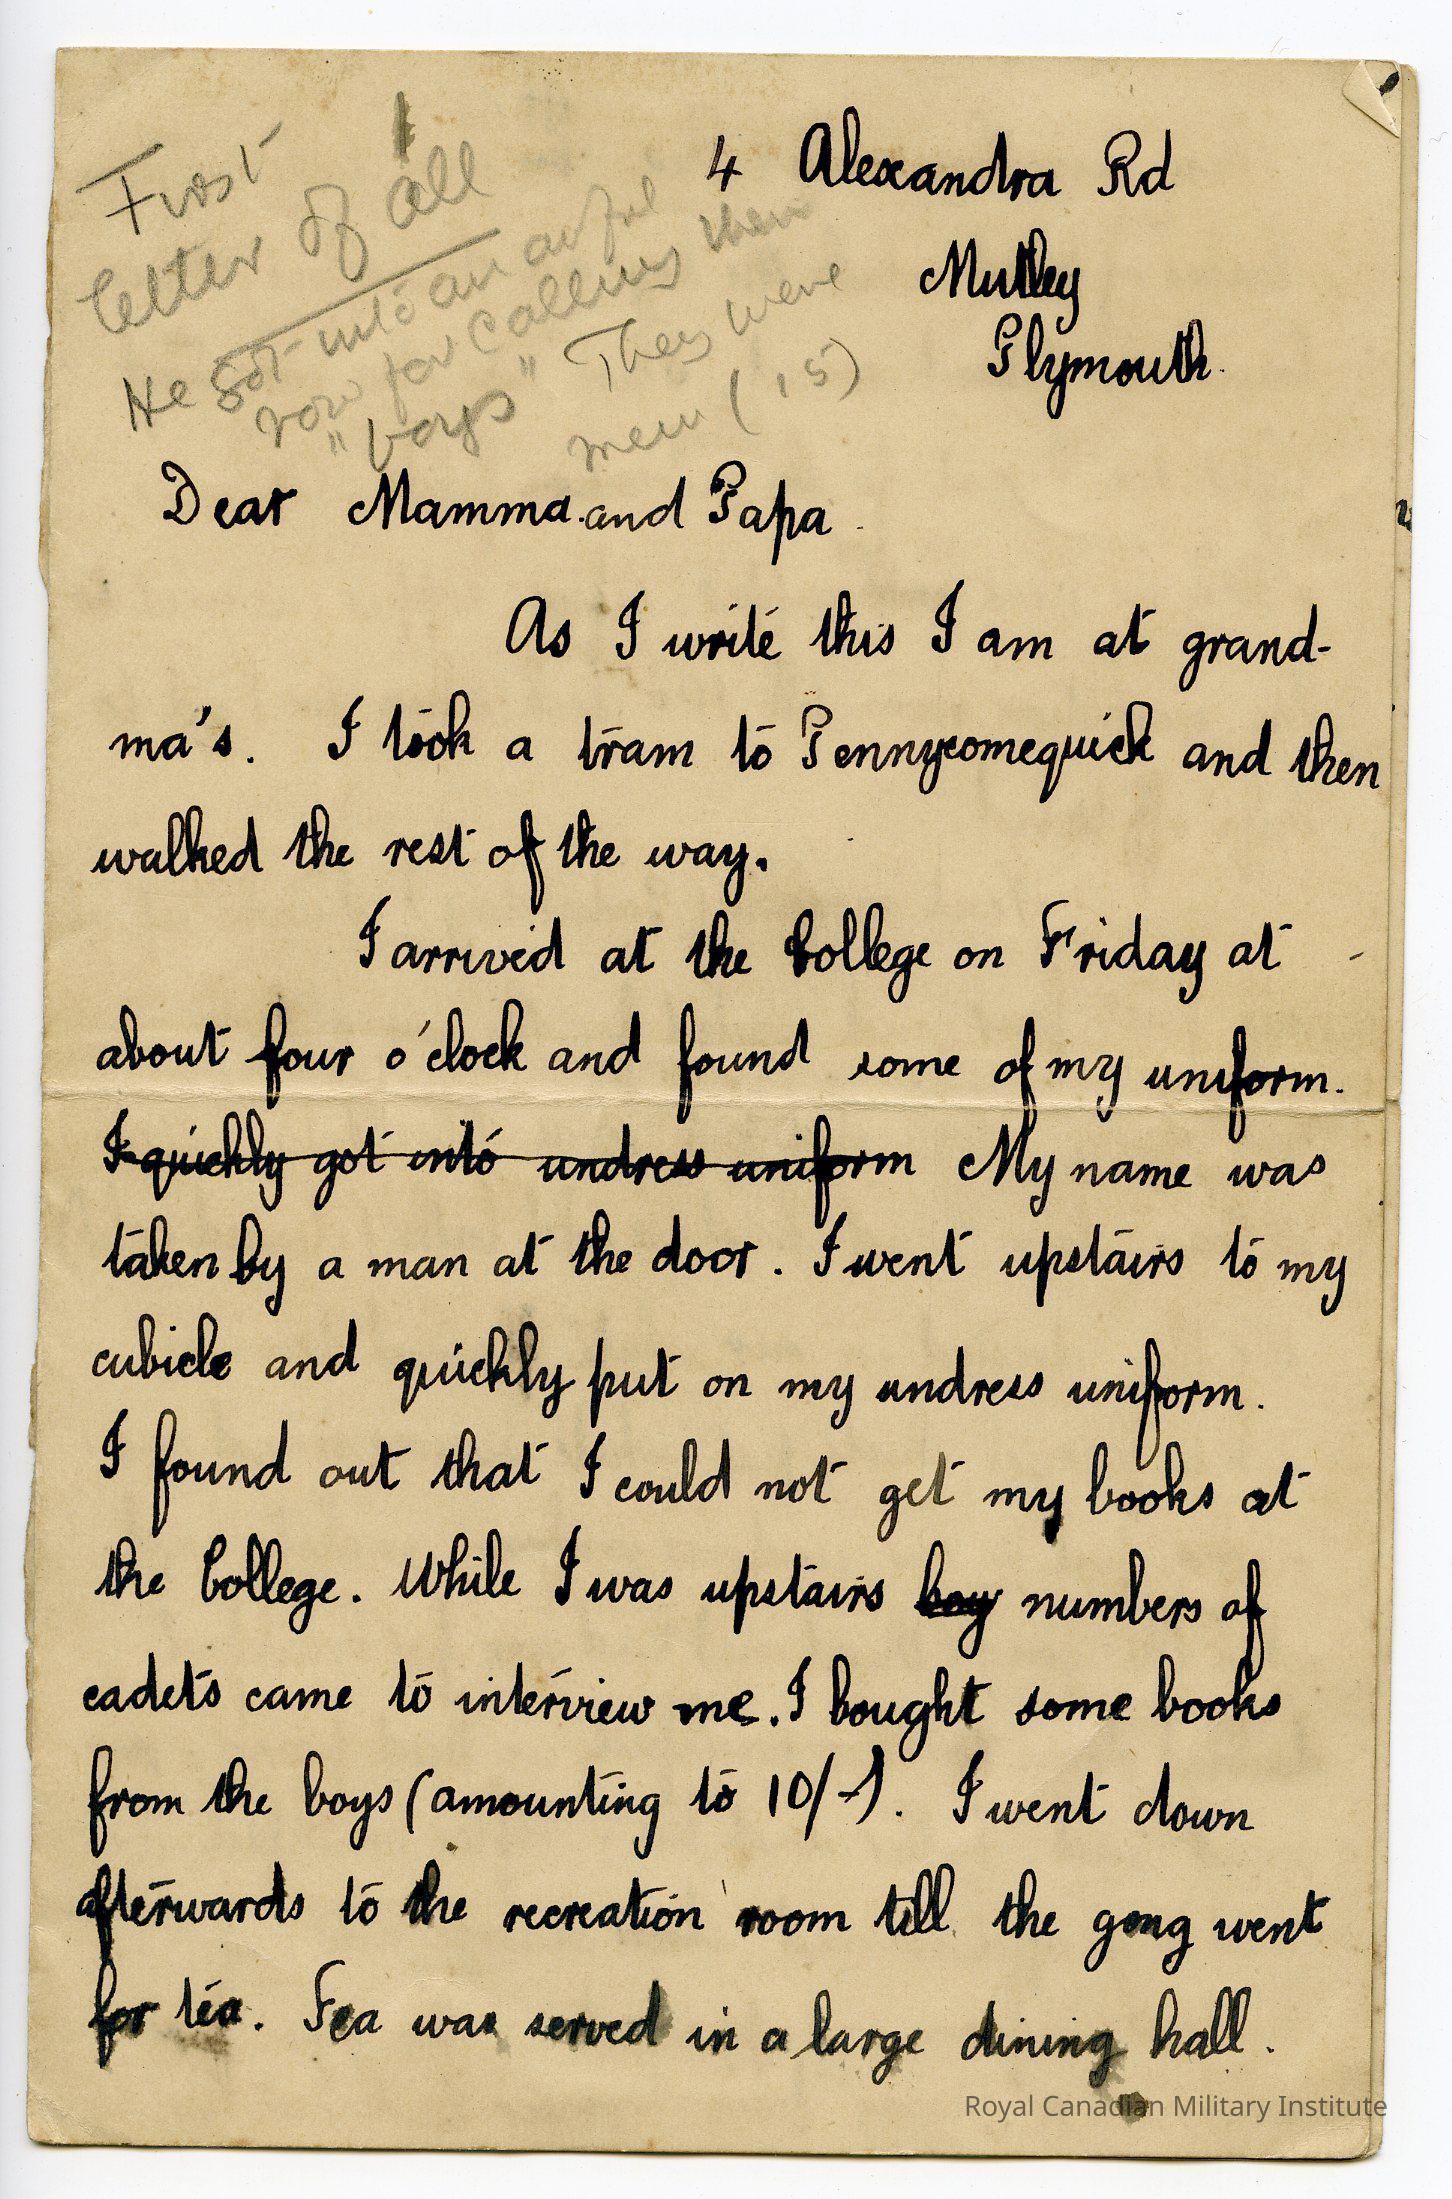 First
letter of all
He got into an awful
row for calling them
"boys" They were
men (15)
4 Alexandra Rd
Mutley
Plymouth.
Dear Mamma and Papa.
As I write this I am at grand-
ma's. I took a tram to Pennycomequick and then
walked the rest of the way.
I arrived at the College on Friday at
about four o'clock and found some of my uniform.
I quickly got into undress uniform My name was
taken by a man at the door. I went upstairs to my
cubicle and quickly put on my undress uniform.
I found out that I could not get my books at
the College. While I was upstairs boy numbers of
cadets came to interview me. I bought some books
from the boys (amounting to 10/-). I went down
afterwards to the recreation room till the gong went
for tea. Tea was served in a large dining hall.
Royal Canadian Military Institute